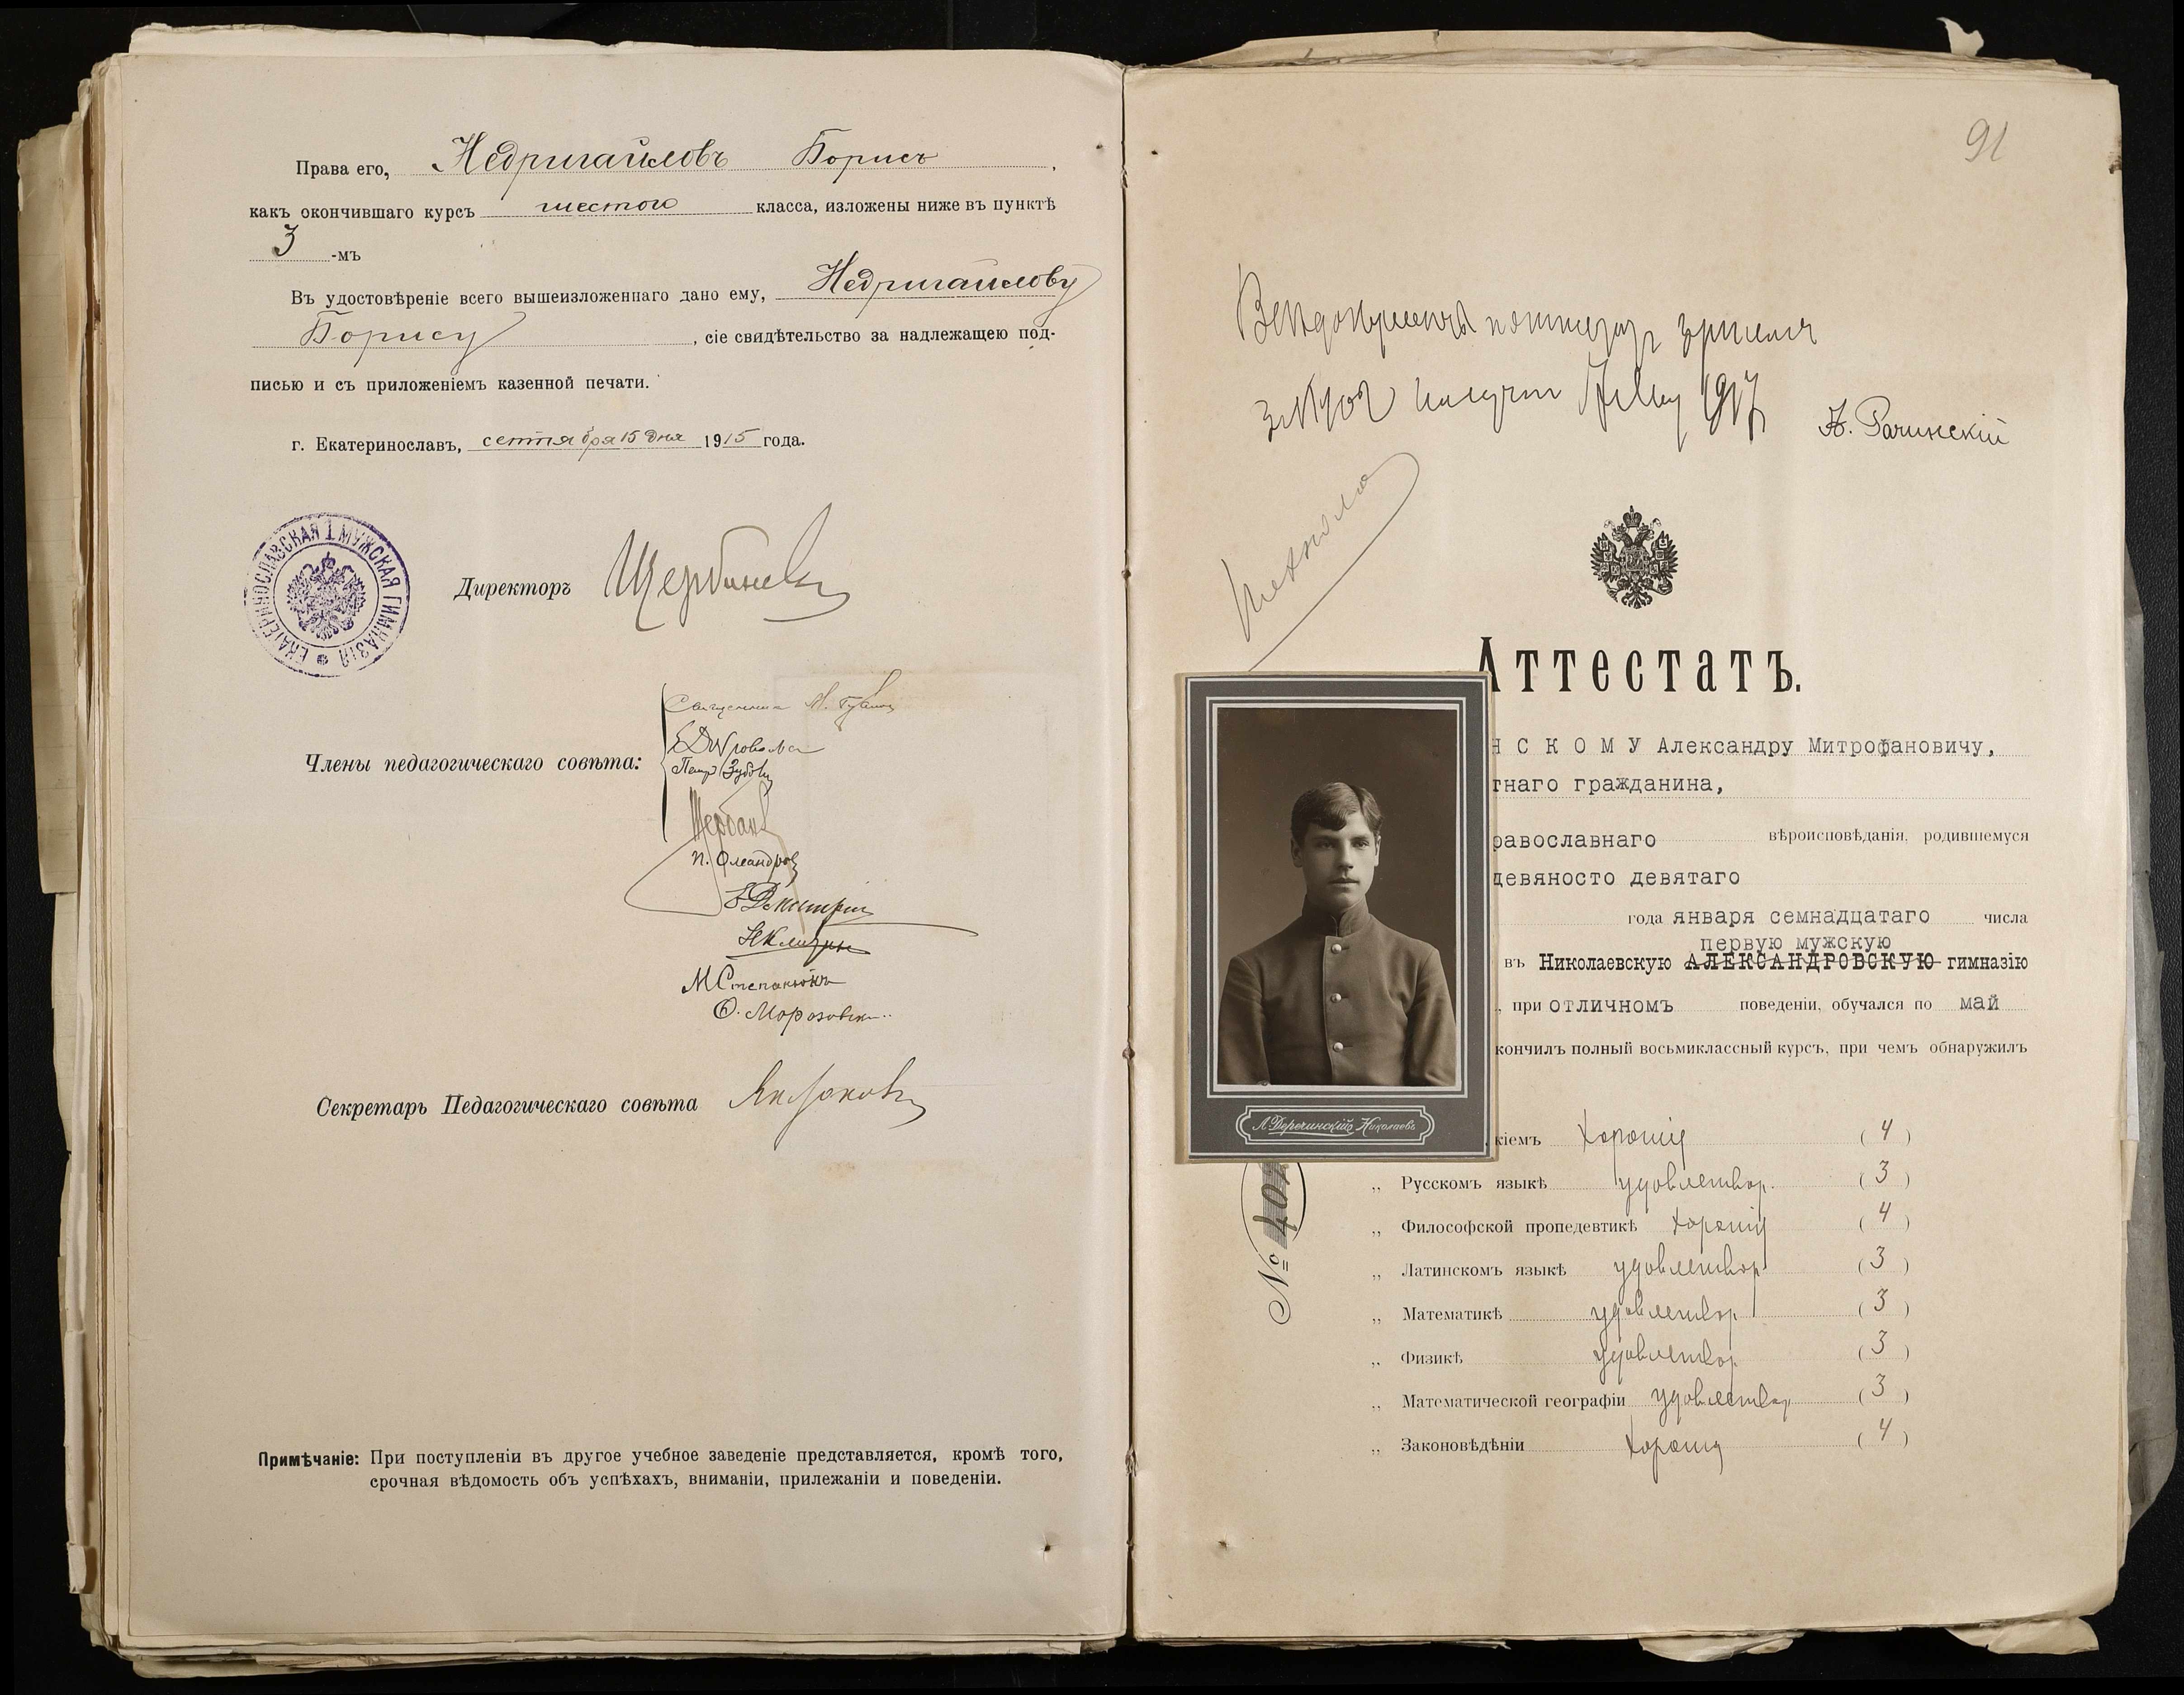 Права его, Недригайловъ Борисъ,
какъ окончившаго курсъ шестого класса, изложены ниже въ пунктѣ
3 -мъ
Въ удостовѣреніе всего вышеизложеннаго дано ему, Недригайлову
Борису, сіе свидѣтельство за надлежащею под-
писью и съ приложеніемъ казенной печати.
г. Екатеринославъ, сентября 15 дня 1915 года.
ЕКАТЕРИНОСЛАВСКАЯ I МУЖСКАЯ ГИМНАЗІЯ
Директоръ
Члены педагогическаго совѣта:
Священникъ М.
Петръ Зубовъ
Щербан
П. Олеандров
М Степанюкъ
Ѳ. Морозовск
Секретарь Педагогическаго совѣта
Примѣчаніе: При поступленіи въ другое учебное заведеніе представляется, кромѣ того,
срочная вѣдомость объ успѣхахъ, вниманіи, прилежаніи и поведеніи.
91
получил 1917
Рачинскій
Аттестатъ.
НСКОМУ Александру Митрофановичу,
тнаго гражданина,
равославнаго вѣроисповѣданія, родившемуся
девяносто девятаго
года января семнадцатаго числа
первую мужскую
въ Николаевскую АЛЕКСАНДРОВСКУЮ гимназію
, при отличномъ поведеніи, обучался по май
кончилъ полный восьмиклассный курсъ, при чемъ обнаружилъ
Л. Деречинскій Николаевъ
кіемъ хорошія (4)
„ Русскомъ языкѣ удовлетвор. (3)
„ Философской пропедевтикѣ хорошія (4)
„ Латинскомъ языкѣ удовлетвор (3)
„ Математикѣ удовлетвор (3)
„ Физикѣ удовлетвор (3)
„ Математической географіи удовлетвор (3)
„ Законовѣдѣніи хорошія (4)
№ 40